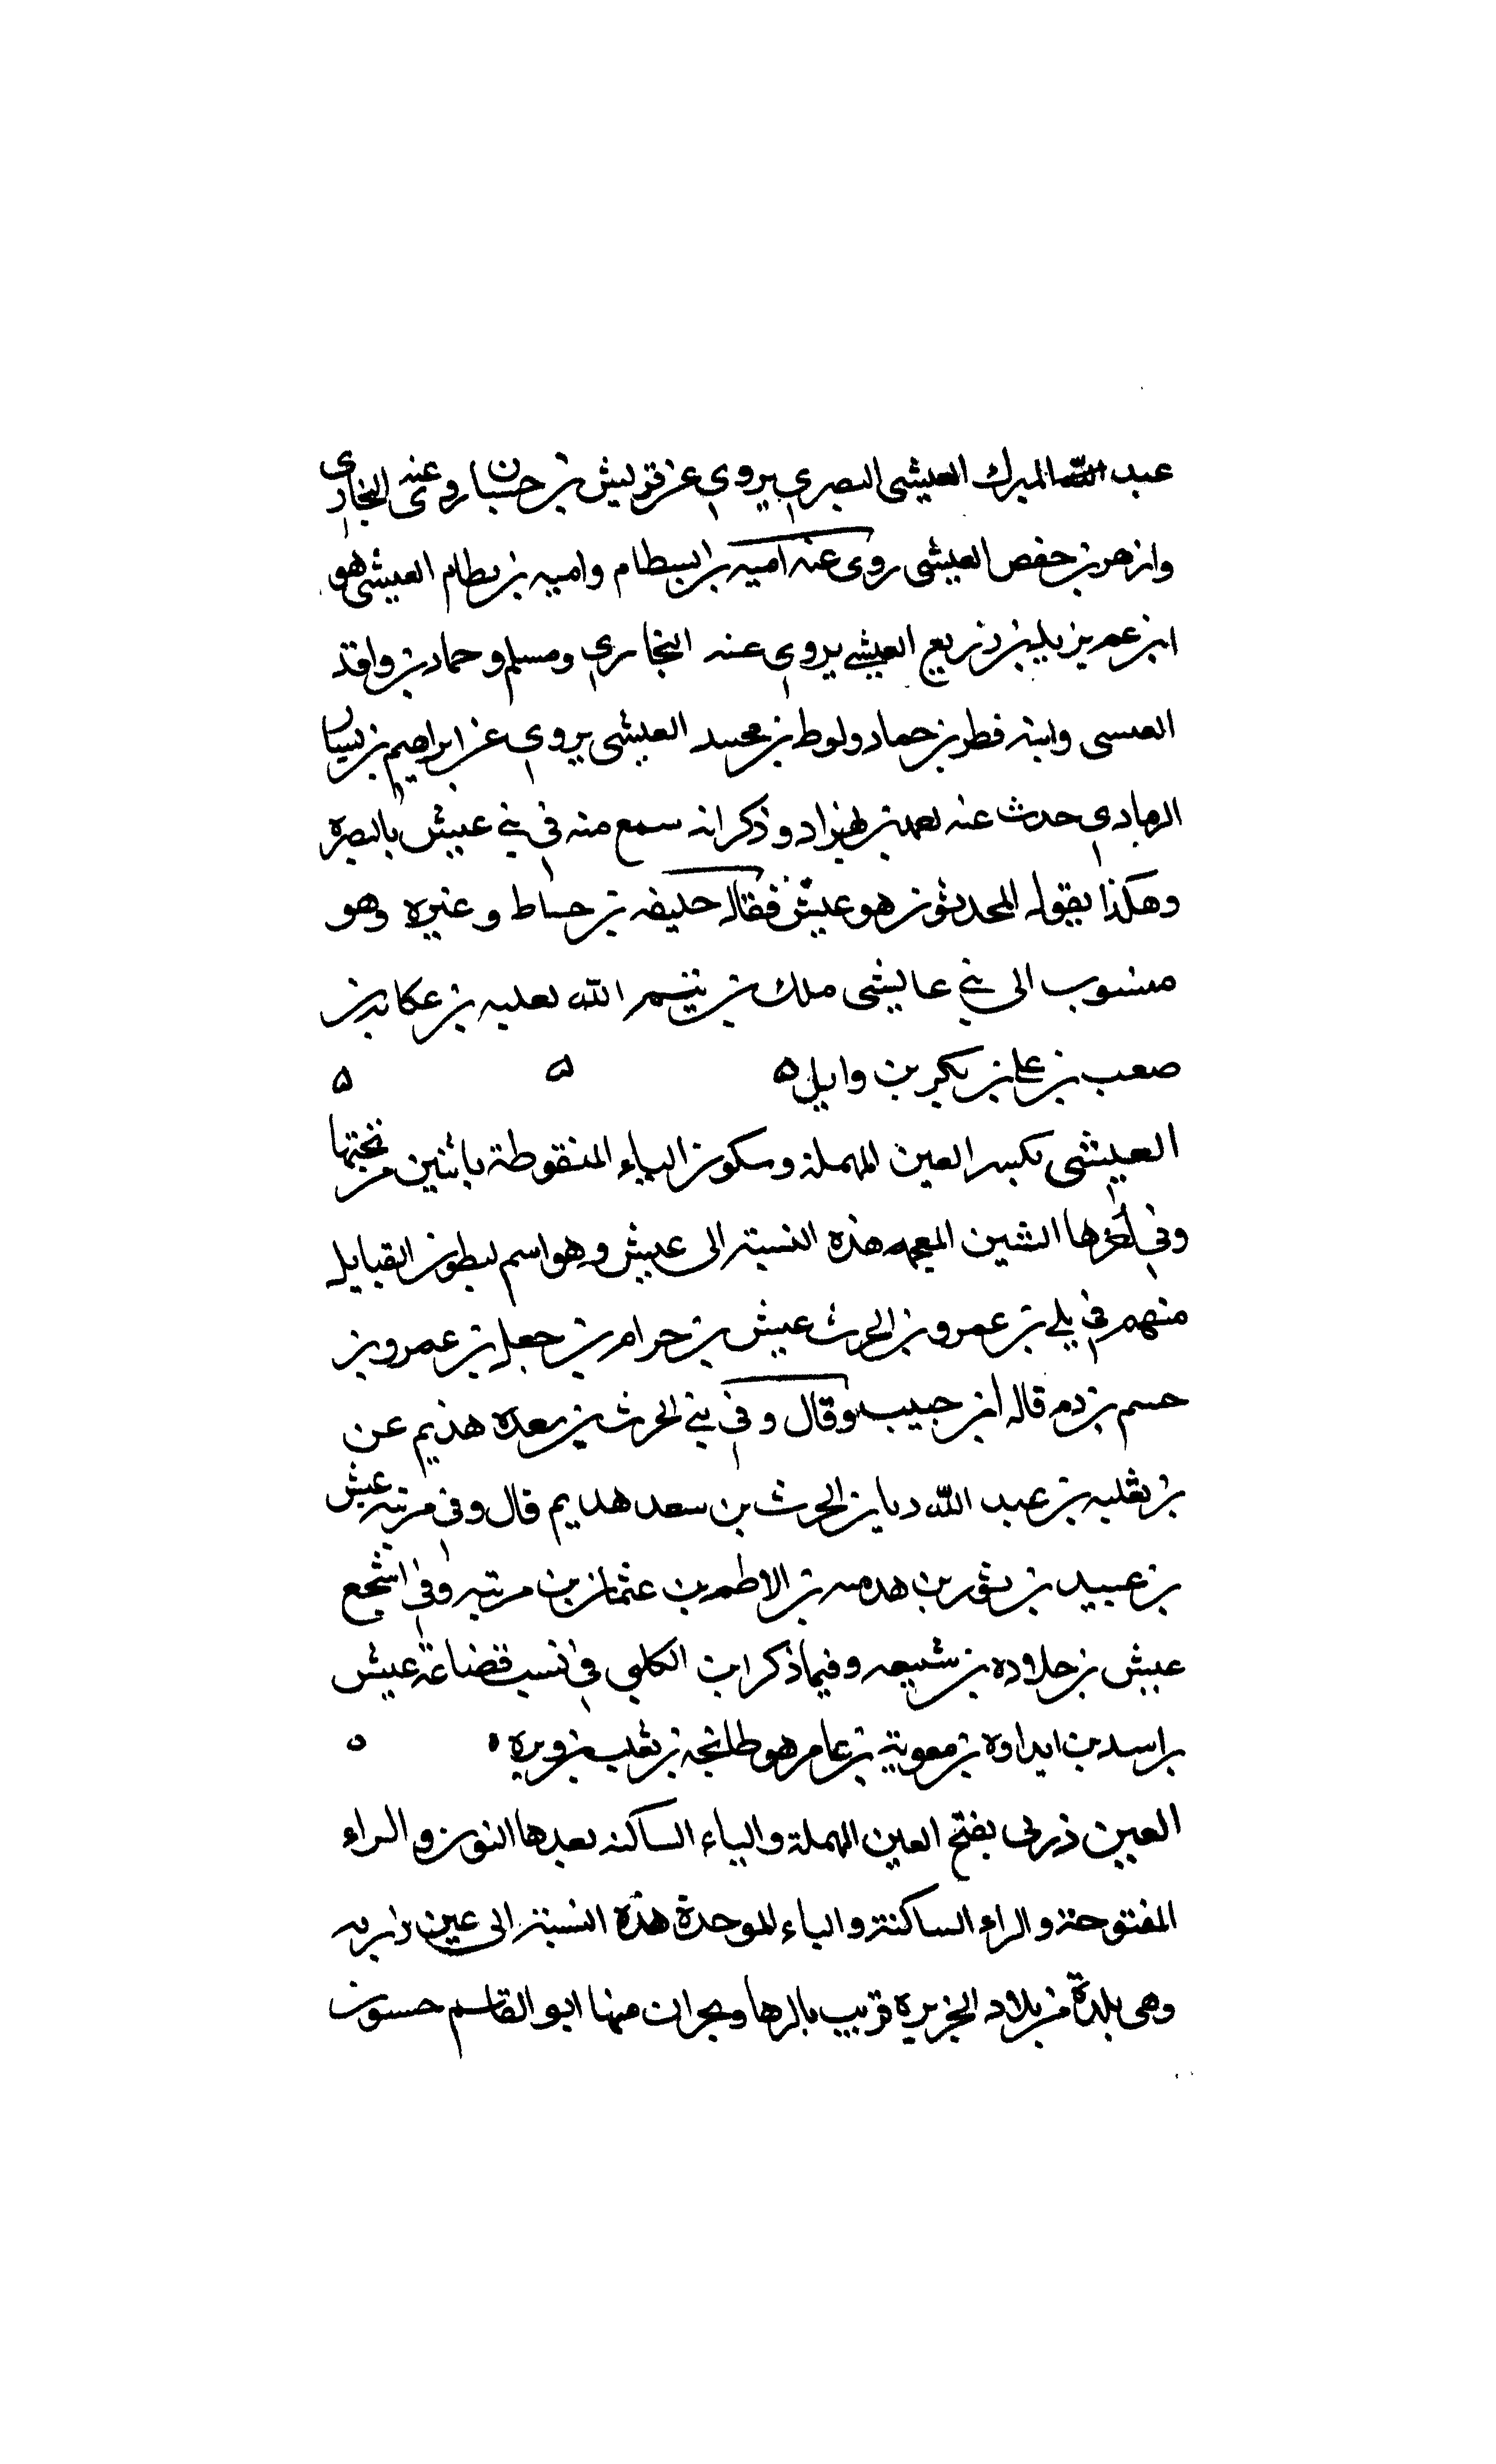 عبد الله المبرك العيشى البصرى يروى عن قريش بن حسان روى عنه البخارى
وازهر بن حفص العيشى روى عنه اميه بن البسطام واميه بن بطام العيشى هو
ابن عم يزيد بن زريع العيشى يروى عنه البخارى ومسلم وحماد بن واقد
العسى وابنه فطر بن حماد ولوط بن محمد العيشى يروى عن ابراهيم بن بسار
الرمادى حدث عنه بهزاد وذكر انه سمع منه فى بنى عيش بالبصره
وهكذا يقوله المحدثون هو عيش فقاله خليفه بن خياط وغيره وهو
منسوب الى بنى عايشى ملك بن تيم الله ثعلبه بن عكابه بن
صعب بن على بن بكر بن وايل ه ه ه
العيشى بكسر العين المهملة وسكون الياء المنقوطة باثنين من تحتها
وفى اخرها الشين المعجمه هذه النسبة الى عيش وهو اسم لبطون القبايل
منهم فى بلى بن عمرو بن الحرث عيش بن حرام بن جعل بن عمرو بن
جسم بن ودم قاله ابن حبيب وقال وفى بنى الحرث بن سعده هذيم عن
بن ثعلبه بن عبد الله ديا بن الحرث بن سعد هديم قال وفى مزينه عيش
بن عبيد بن ثور بن هدمه بن الاطم بن عثمان بن مزينه وفى اشجع
عيش بن خلاوه بن سبيع وفيما ذكر ابن الكلبى فى نسب قضاعة عيش
بن اسد بن ابداوه بن معوية بن عامر هو طلنجه بن تغلب بن وبره ه ه
العين ذربى بفتح العين المهملة والياء الساكنه بعدها النون والراء
المفتوحة والراء الساكنة والباء الموحدة هذه النسبة الى عين زربه
وهى بلدة من بلاد الجزيره قريب بالرها وحران منها ابو القاسم حسون